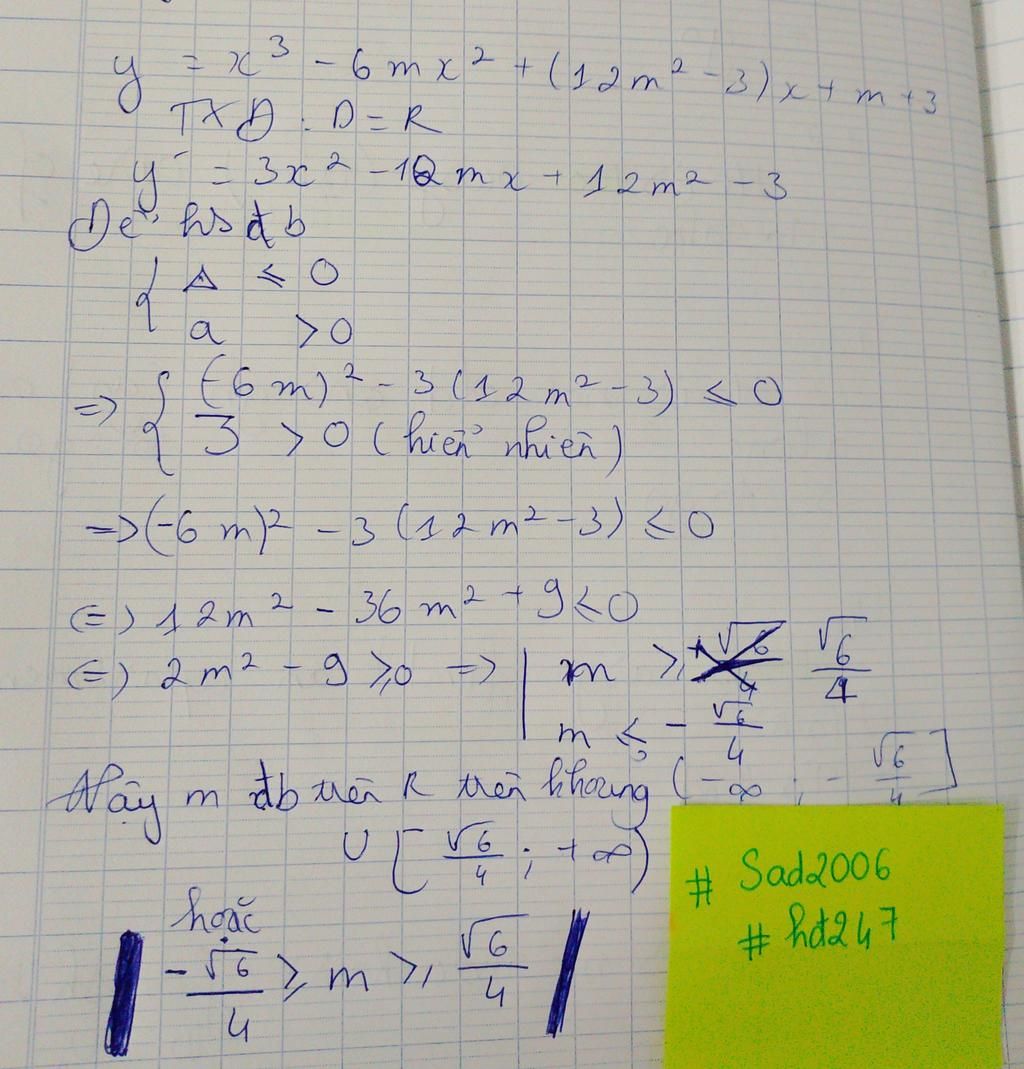 y = x³ - 6mx² + (12m² - 3)x + m + 3
TXĐ : D = R
y' = 3x² - 12mx + 12m² - 3
Để hs đb
{ Δ ≤ 0
a > 0
=> { (-6m)² - 3(12m² - 3) ≤ 0
3 > 0 (hiển nhiên)
=> (-6m)² - 3(12m² - 3) ≤ 0
<=> 12m² - 36m² + 9 ≤ 0
<=> 2m² - 9 ≥ 0 => | m ≥ √6/4
m ≤ -√6/4
Vậy m đb trên R trên khoảng (-∞ ; -√6/4]
∪ [√6/4 ; +∞)
hoặc
-√6/4 ≥ m ≥ √6/4
# Sad2006
# hđ247